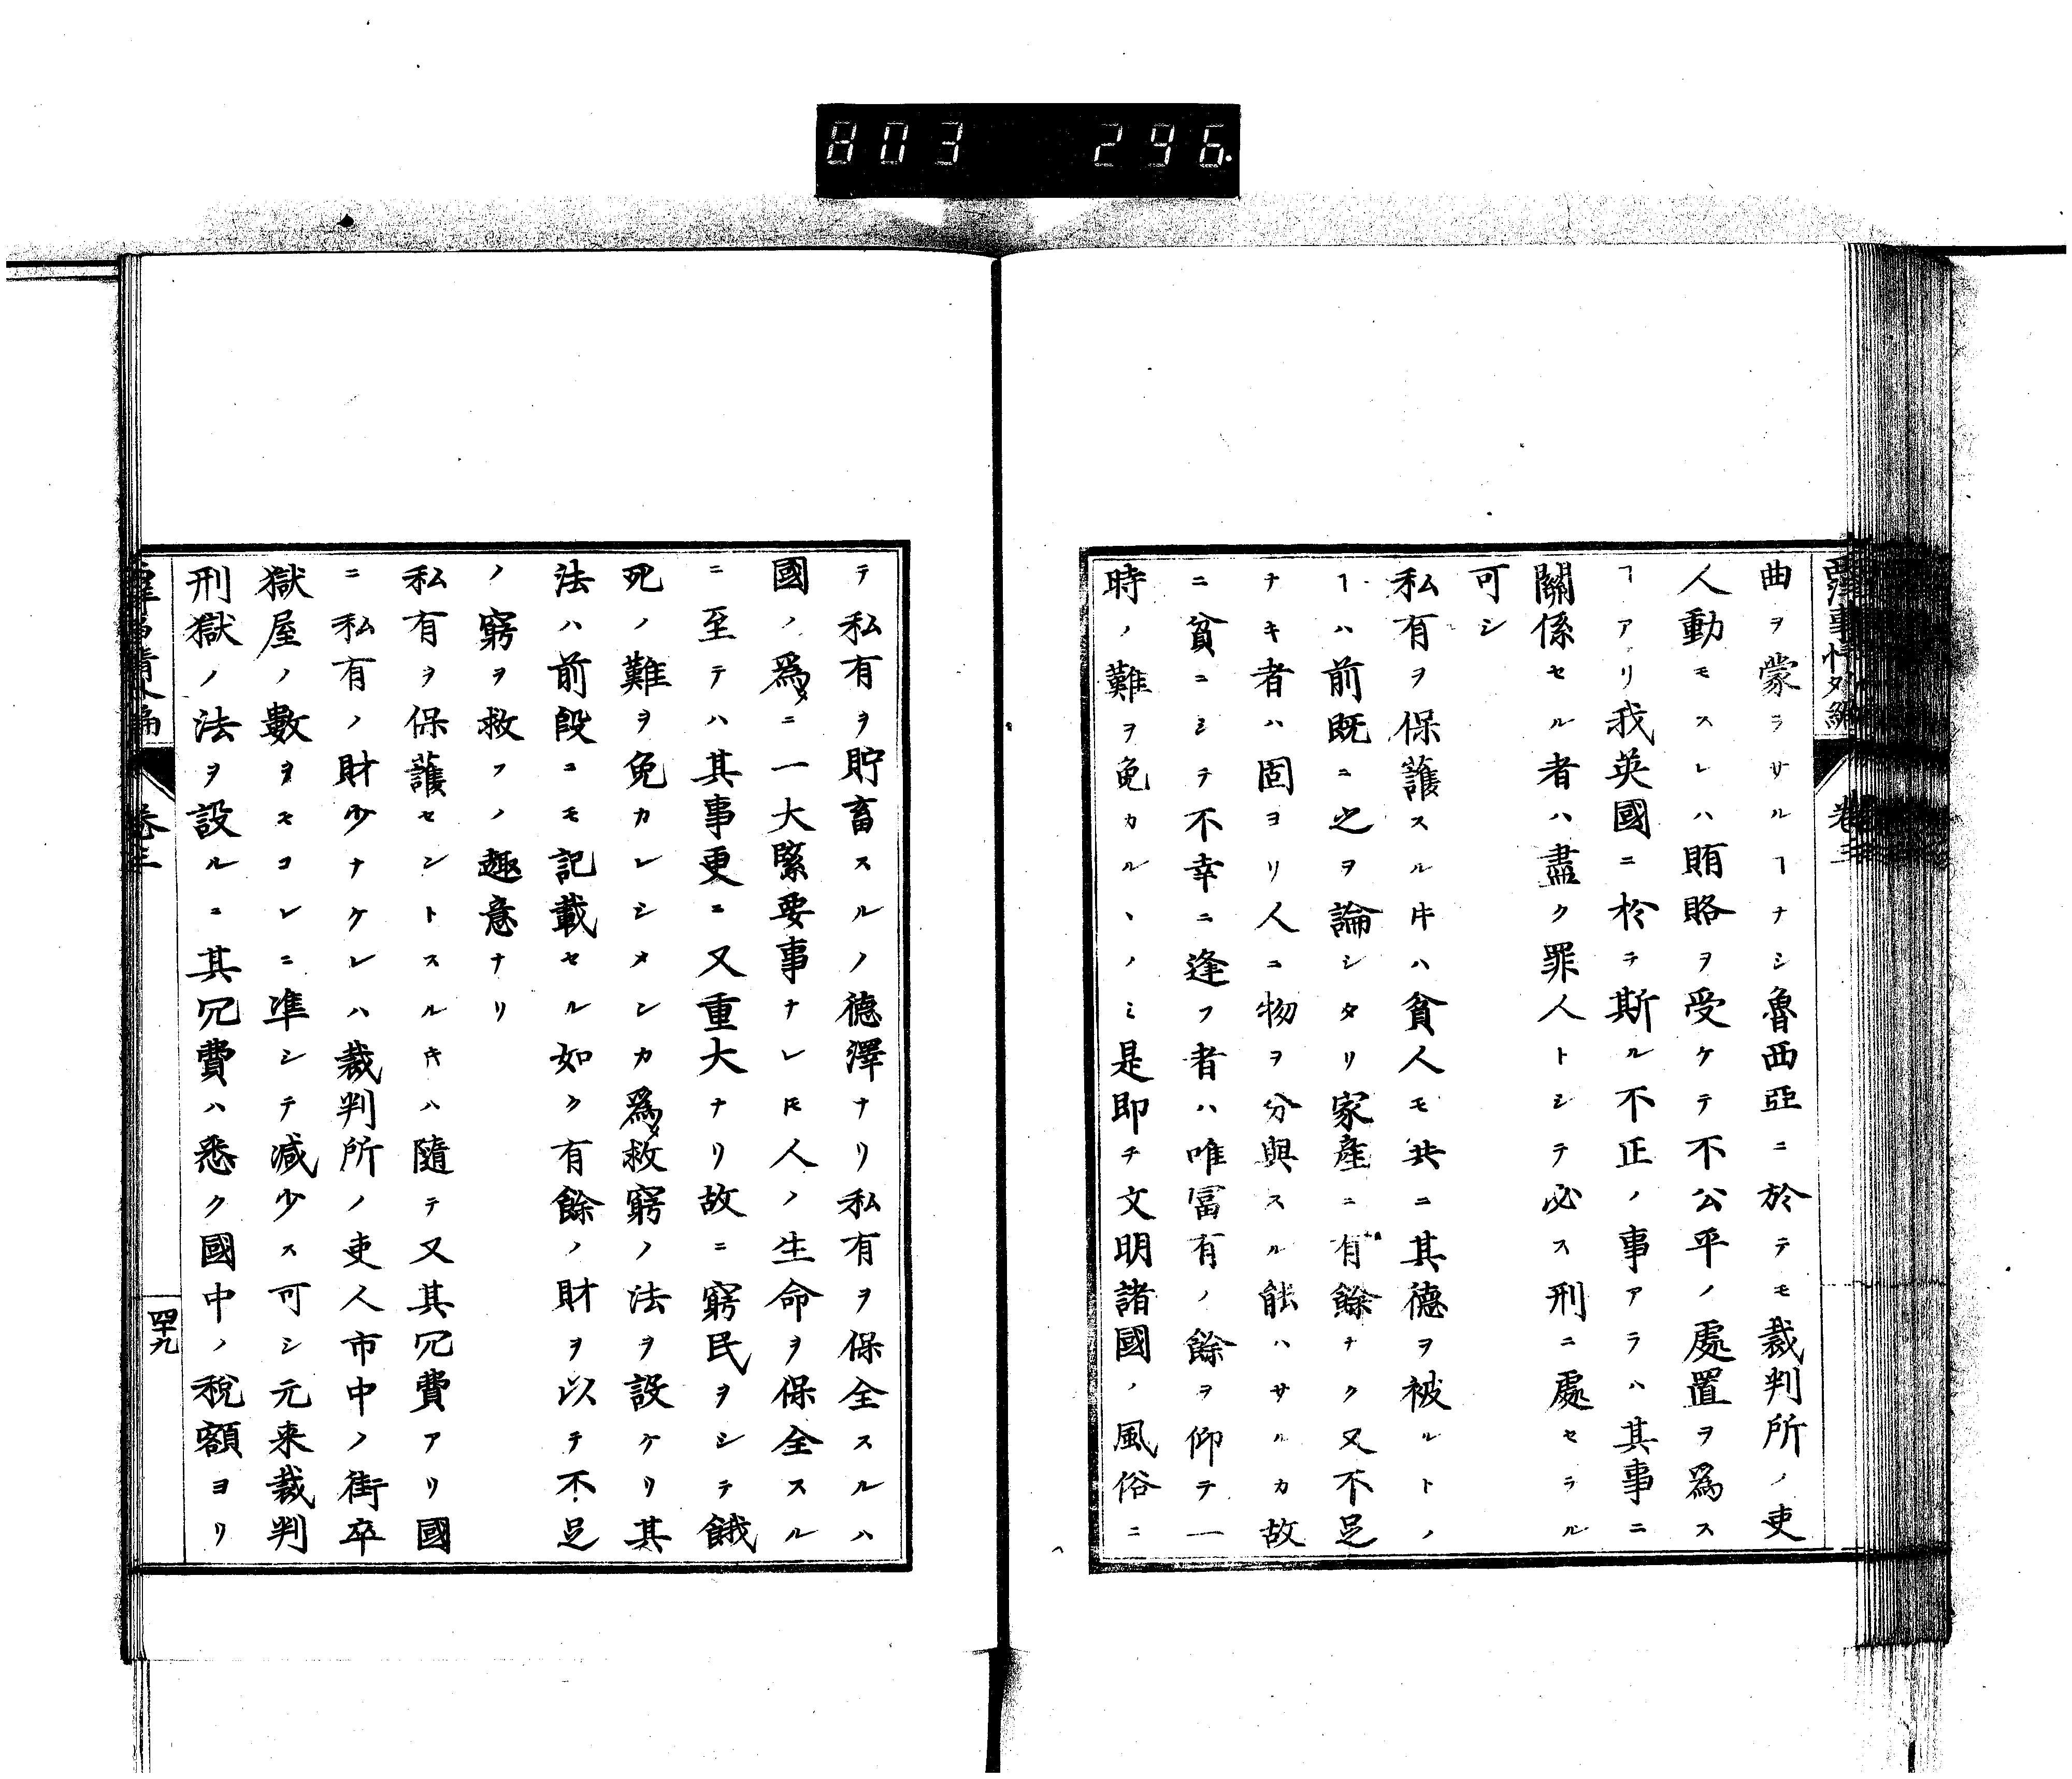 803 296.
西洋事情外編
卷三
曲ヲ蒙ラサルヿナシ魯西亞ニ於テモ裁判所ノ吏
人動モスレハ賄賂ヲ受ケテ不公平ノ處置ヲ爲ス
ヿアリ我英國ニ於テ斯ル不正ノ事アラハ其事ニ
關係セル者ハ盡ク罪人トシテ必ス刑ニ處セラル
可シ
私有ヲ保護スル𪜈ハ貧人モ共ニ其德ヲ被ルトノ
ヿハ前既ニ之ヲ論シタリ家産ニ有餘ナク又不足
ナキ者ハ固ヨリ人ニ物ヲ分與スル能ハサルカ故
ニ貧ニシテ不幸ニ逢フ者ハ唯冨有ノ餘ヲ仰テ一
時ノ難ヲ免カルヽノミ是即チ文明諸國ノ風俗ニ
テ私有ヲ貯畜スルノ德澤ナリ私有ヲ保全スルハ
國ノ爲メニ一大緊要事ナレ𪜈人ノ生命ヲ保全スル
ニ至テハ其事更ニ又重大ナリ故ニ窮民ヲシテ餓
死ノ難ヲ免カレシメンカ爲メ救窮ノ法ヲ設ケリ其
法ハ前段ニモ記載セル如ク有餘ノ財ヲ以テ不足
ノ窮ヲ救フノ趣意ナリ
私有ヲ保護セントスルキハ隨テ又其冗費アリ國
ニ私有ノ財少ナケレハ裁判所ノ吏人市中ノ街卒
獄屋ノ數ヲモコレニ準シテ減少ス可シ元来裁判
刑獄ノ法ヲ設ルニ其冗費ハ悉ク國中ノ稅額ヨリ
卷三
四十九